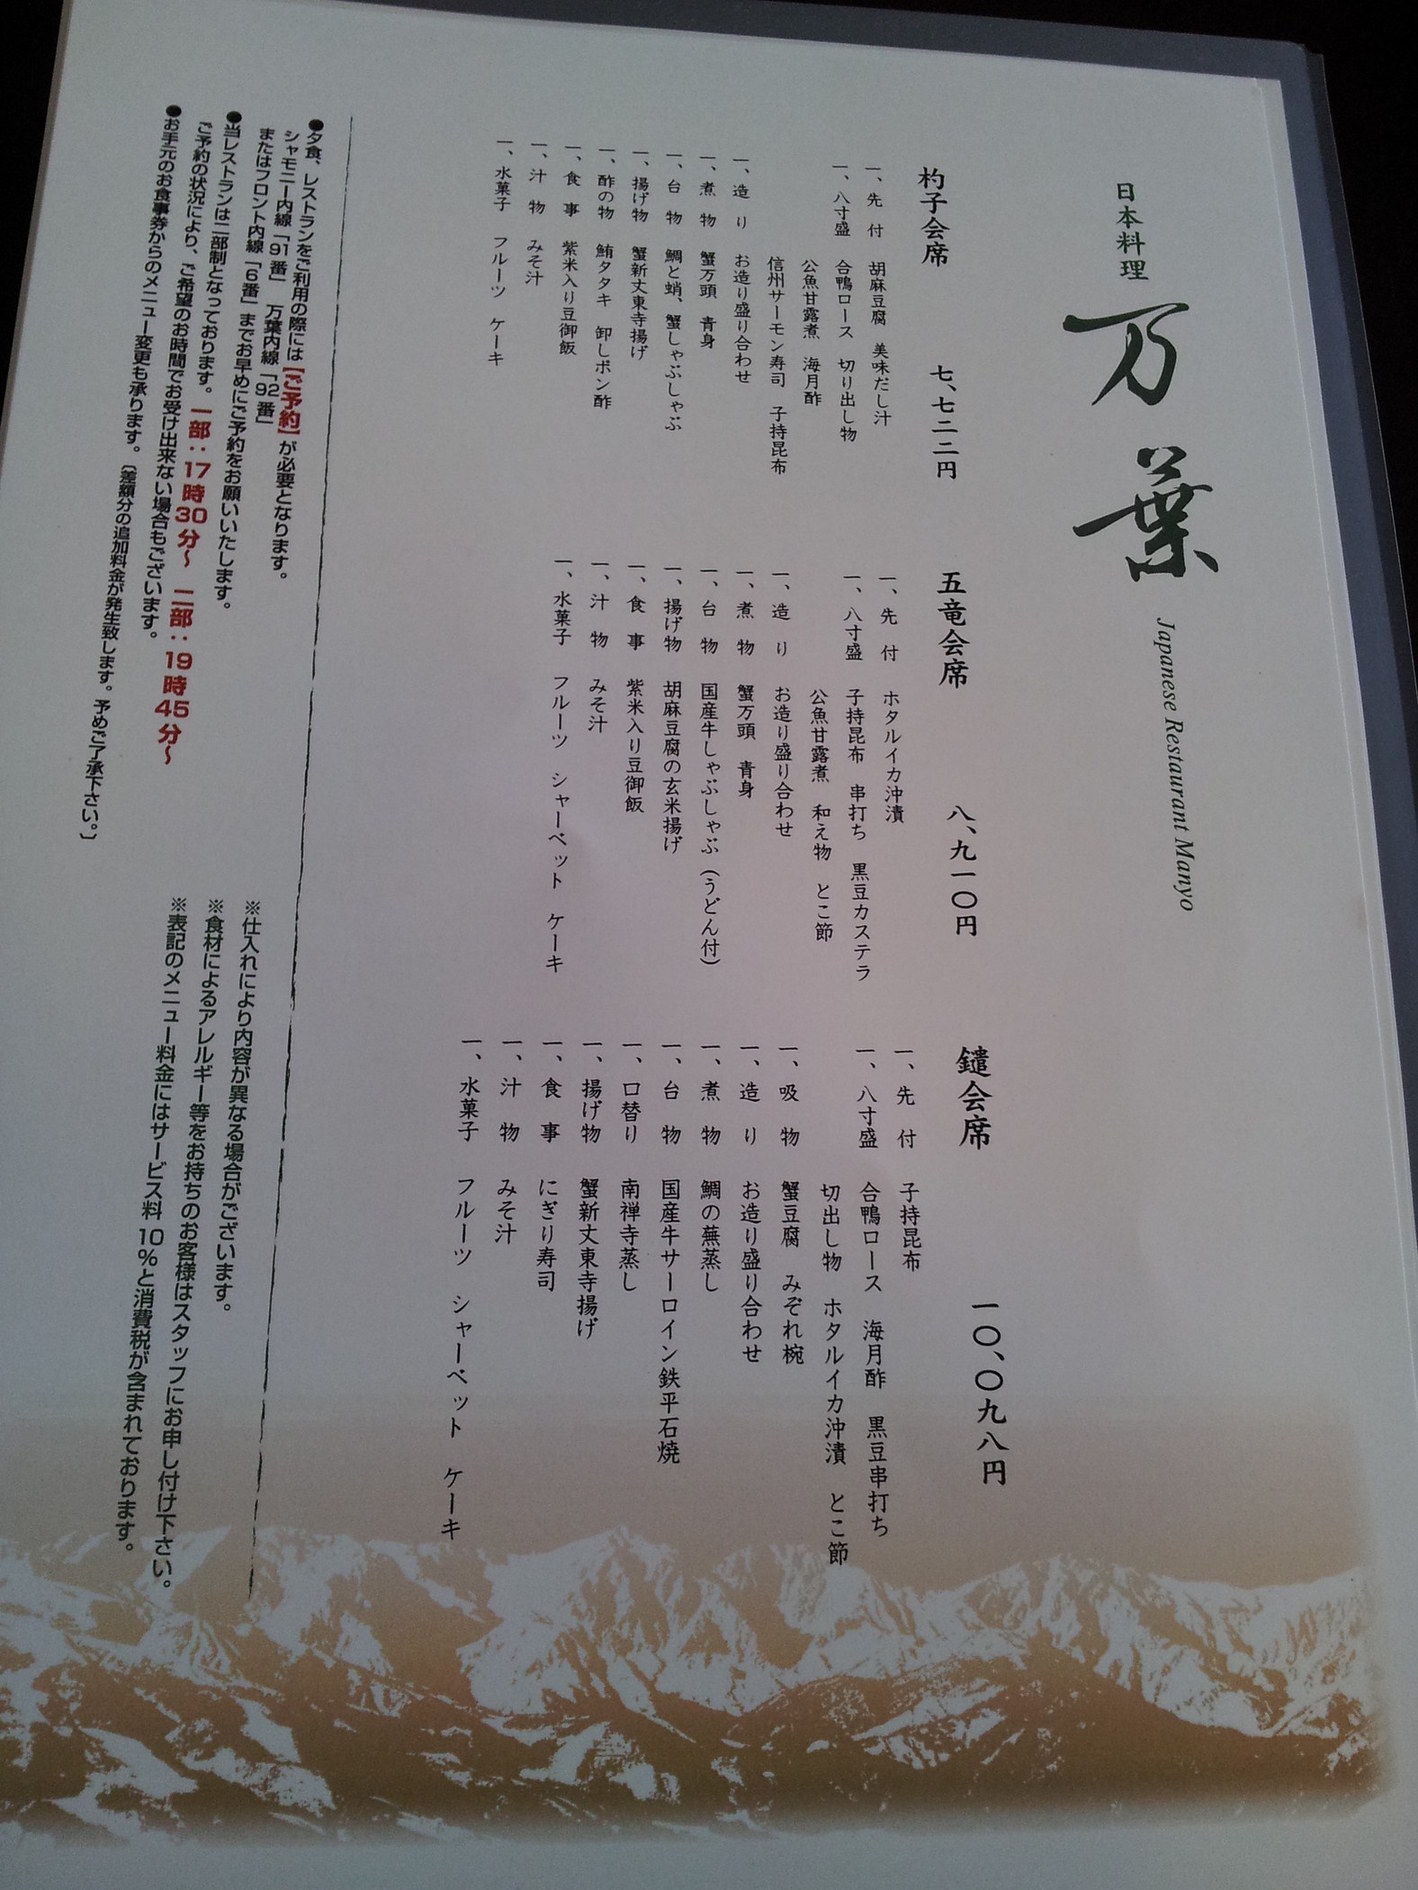 日本料理
万葉
Japanese Restaurant Manyo
杓子会席 七、七二二円
一、先 付 胡麻豆腐 美味だし汁
一、八寸盛 合鴨ロース 切り出し物
公魚甘露煮 海月酢
信州サーモン寿司 子持昆布
一、造 り お造り盛り合わせ
一、煮 物 蟹万頭 青身
一、台 物 鯛と蛸、蟹しゃぶしゃぶ
一、揚げ物 蟹新丈東寺揚げ
一、酢の物 鮪タタキ 卸しポン酢
一、食 事 紫米入り豆御飯
一、汁 物 みそ汁
一、水菓子 フルーツ ケーキ
五竜会席 八、九一〇円
一、先 付 ホタルイカ沖漬
一、八寸盛 子持昆布 串打ち 黒豆カステラ
公魚甘露煮 和え物 とこ節
一、造 り お造り盛り合わせ
一、煮 物 蟹万頭 青身
一、台 物 国産牛しゃぶしゃぶ（うどん付）
一、揚げ物 胡麻豆腐の玄米揚げ
一、食 事 紫米入り豆御飯
一、汁 物 みそ汁
一、水菓子 フルーツ シャーベット ケーキ
鑓会席 一〇、〇九八円
一、先 付 子持昆布
一、八寸盛 合鴨ロース 海月酢 黒豆串打ち
切出し物 ホタルイカ沖漬 とこ節
一、吸 物 蟹豆腐 みぞれ椀
一、造 り お造り盛り合わせ
一、煮 物 鯛の蕪蒸し
一、台 物 国産牛サーロイン鉄平石焼
一、口替り 南禅寺蒸し
一、揚げ物 蟹新丈東寺揚げ
一、食 事 にぎり寿司
一、汁 物 みそ汁
一、水菓子 フルーツ シャーベット ケーキ
●夕食、レストランをご利用の際には【ご予約】が必要となります。
シャモニー内線「91番」 万葉内線「92番」
またはフロント内線「6番」までお早めにご予約をお願いいたします。
●当レストランは二部制となっております。一部：17時30分～ 二部：19時45分～
ご予約の状況により、ご希望のお時間でお受け出来ない場合もございます。
●お手元のお食事券からのメニュー変更も承ります。（差額分の追加料金が発生致します。予めご了承下さい。）
※仕入れにより内容が異なる場合がございます。
※食材によるアレルギー等をお持ちのお客様はスタッフにお申し付け下さい。
※表記のメニュー料金にはサービス料10％と消費税が含まれております。